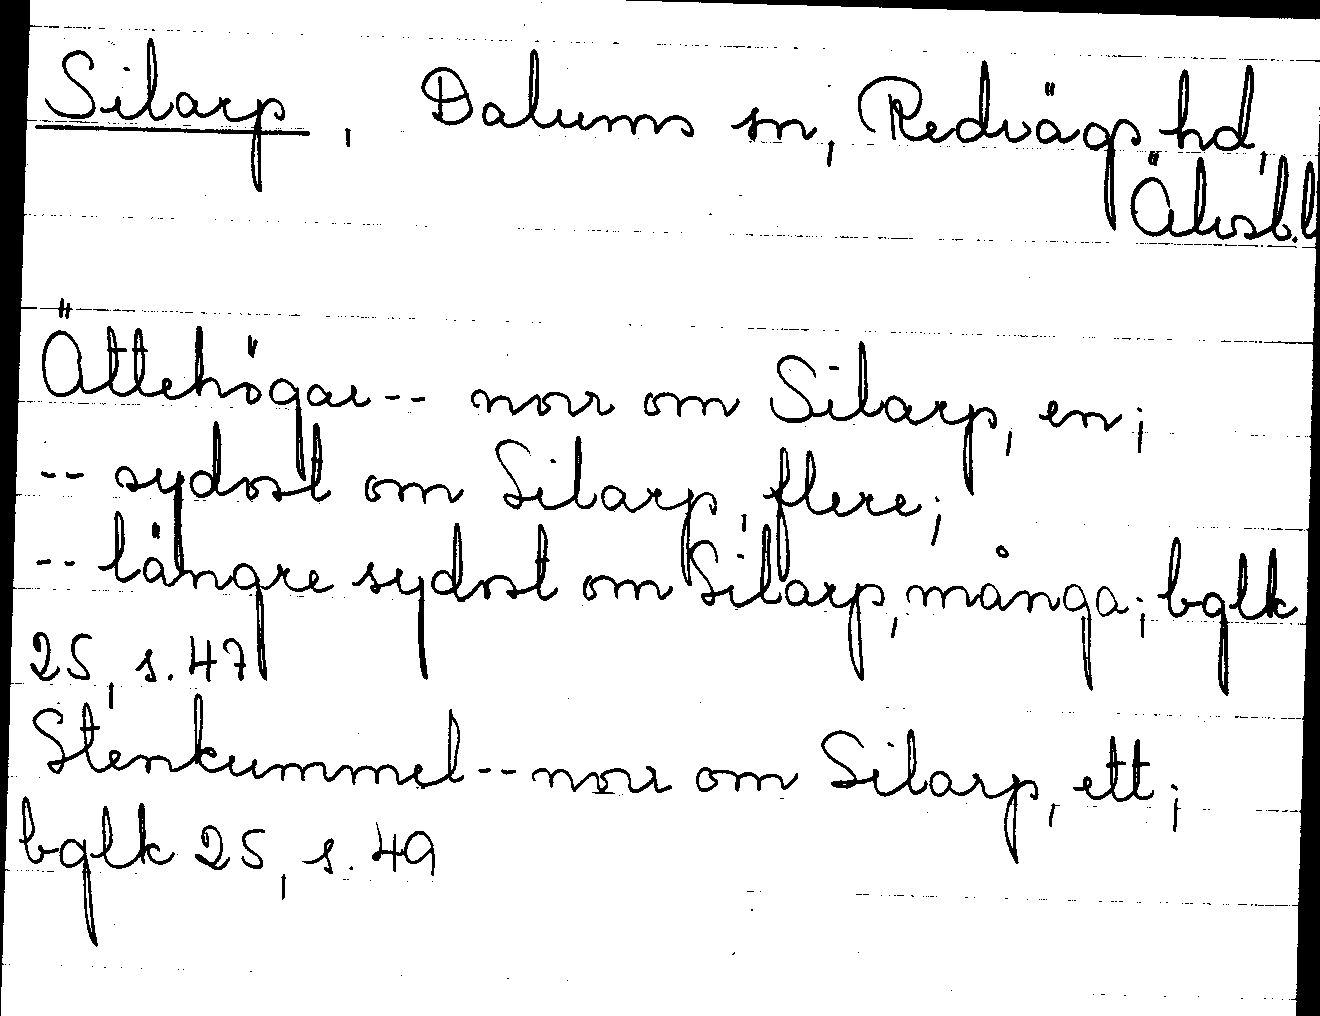 Silarp, Dalums sn, Redvägs hd,
Älvsb.l
Ättehögar-- norr om Silarp, en;
-- sydost om Silarp, flere;
-- längre sydost om Silarp, många; bglk
25, s. 47
Stenkummel-- norr om Silarp, ett;
bglk 25, s. 49